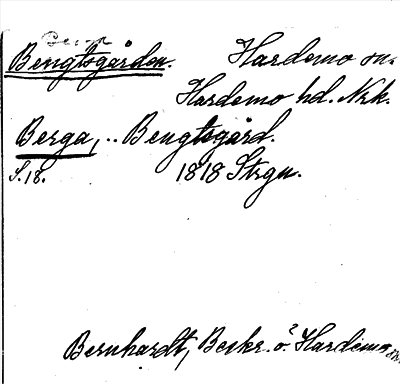 Bengtsgården. Hardemo sn.
Hardemo hd. Nrk.
Berga, .. Bengtsgård.
S. 18. 1818 Strgn.
Bernhardt, Beskr. ö. Hardemo sn.